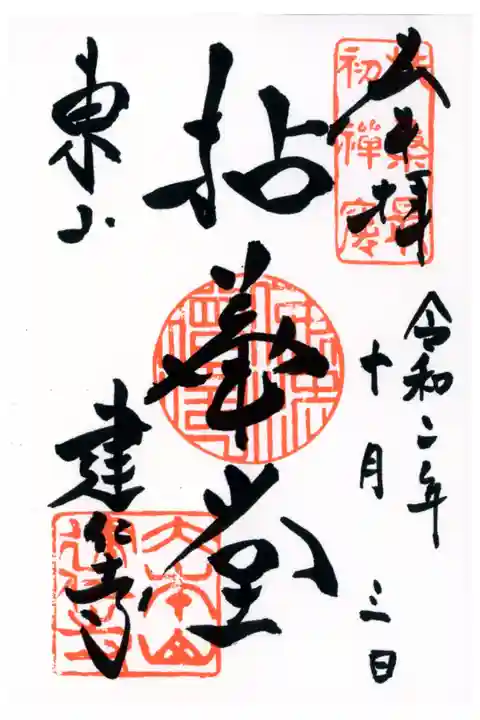 奉拝
扶桑最
初禅窟
令和二年
十月三日
拈華堂
東山
建仁寺
大本山
建仁寺